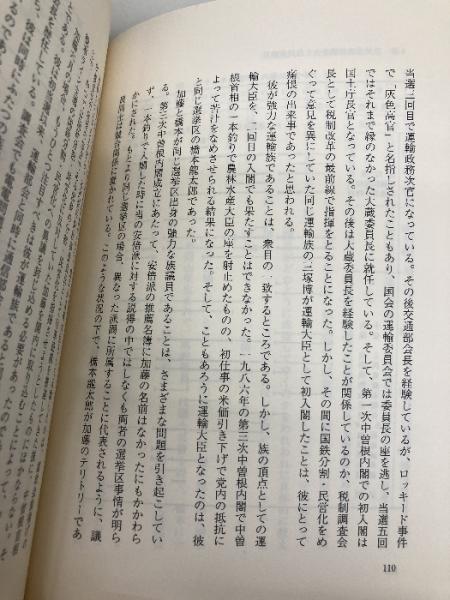 当選二回目で運輸政務次官になっている。その後交通部会長を経験しているが、ロッキード事件
で「灰色高官」と名指しされたこともあり、国会の運輸委員会では委員長の座を逃し、当選五回
ではそれまで縁のなかった大蔵委員長に就任している。そして、第一次中曽根内閣での初入閣は
国土庁長官となっている。その後は大蔵委員長を経験したことが関係しているのか、税制調査会
長として税制改革の最前線で指揮をとることになった。しかし、その間に国鉄分割・民営化をめ
ぐって意見を異にしていた同じ運輸族の三塚博が運輸大臣として初入閣したことは、彼にとって
痛恨の出来事であったと思われる。
彼が強力な運輸族であることは、衆目の一致するところである。しかし、族の頂点としての運
輸大臣を、二回目の入閣でも果たすことはできなかった。一九八六年の第三次中曽根内閣で中曽
根首相の一本釣りで農林水産大臣の座を射止めたものの、初仕事の米価引き下げで党内の抵抗に
よって苦汁をなめさせられる結果になった。そして、こともあろうに運輸大臣となったのは、彼
と同じ選挙区の橋本龍太郎であった。
加藤と橋本が同じ選挙区出身の強力な族議員であることは、さまざまな問題を引き起こしてい
る。第三次中曽根内閣成立にあたって、安倍派の推薦名簿に加藤の名前はなかったにもかかわら
ず、一本釣りで入閣した時に当の安倍派に対する説得の中ではしなくも両者の選挙区事情が明ら
かにされた。もとより同じ選挙区の場合、異なった派閥に所属することに代表されるように、議
員同士は競合関係に置かれている。このような状況の下で、橋本龍太郎が加藤のテリトリーであ
110